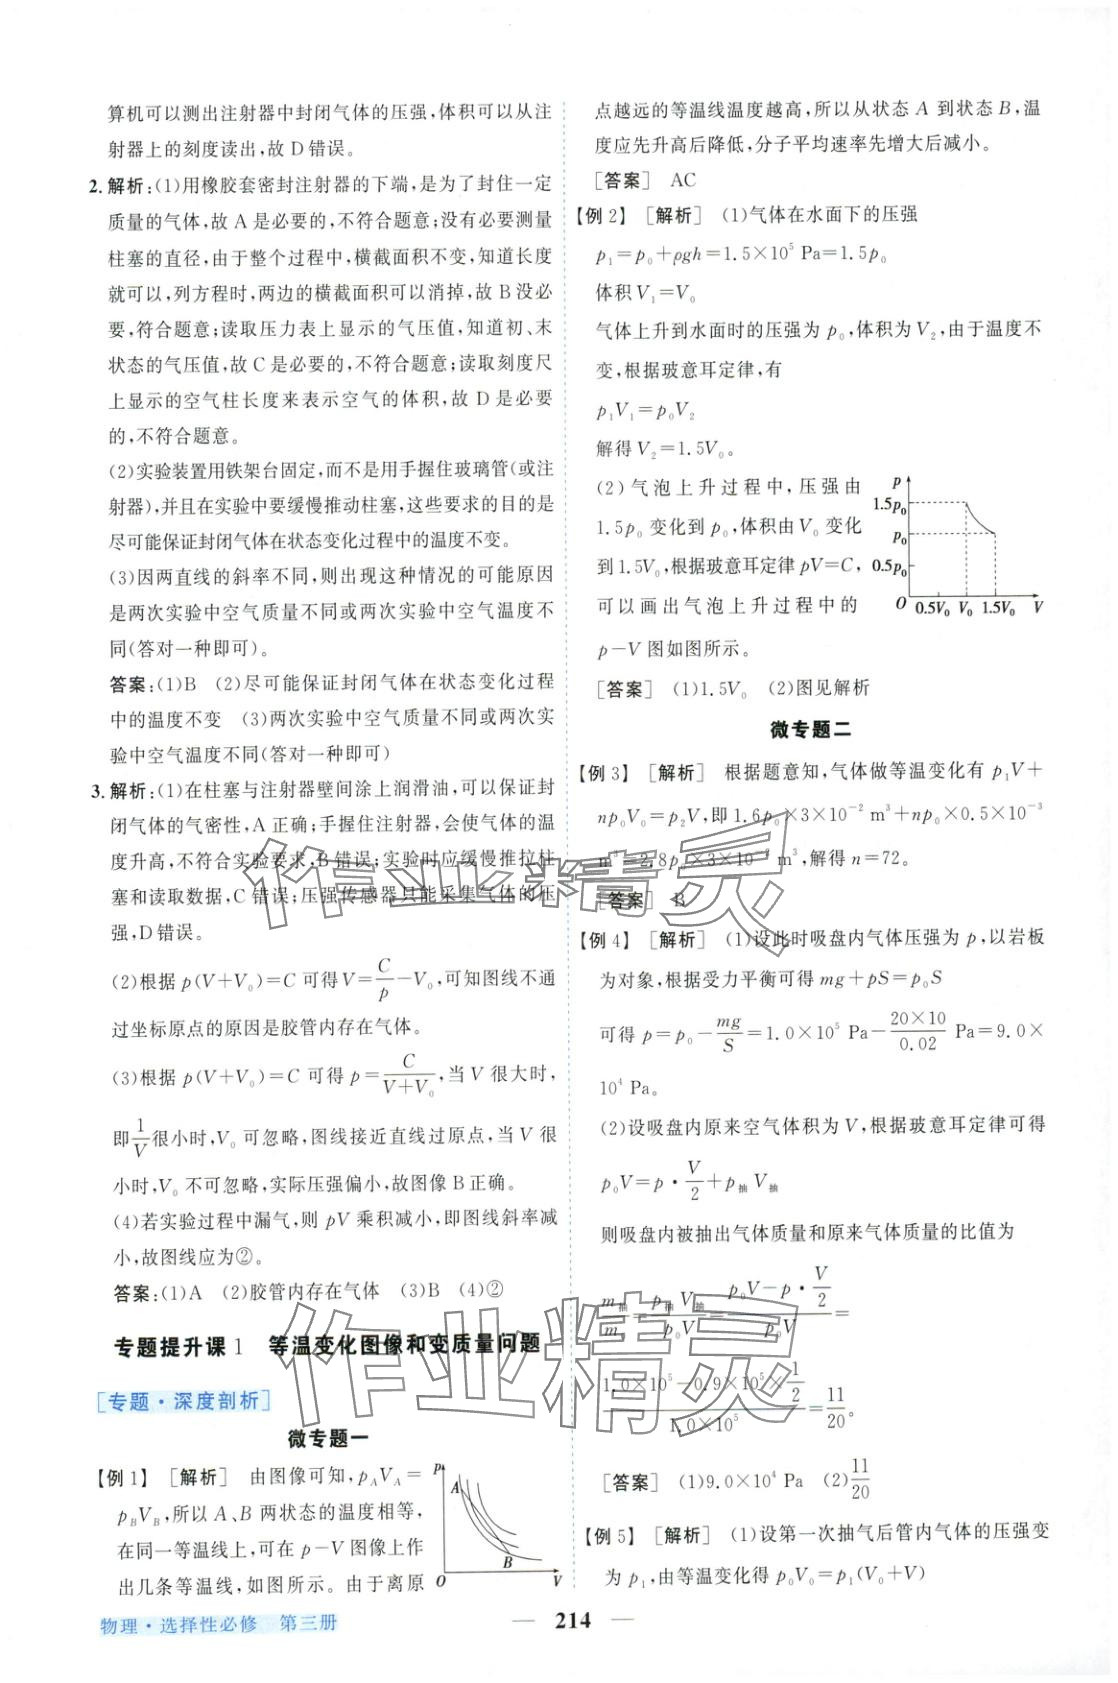 算机可以测出注射器中封闭气体的压强,体积可以从注
射器上的刻度读出,故 D 错误。
2. 解析:(1)用橡胶套密封注射器的下端,是为了封住一定
质量的气体,故 A 是必要的,不符合题意;没有必要测量
柱塞的直径,由于整个过程中,横截面积不变,知道长度
就可以,列方程时,两边的横截面积可以消掉,故 B 没必
要,符合题意;读取压力表上显示的气压值,知道初、末
状态的气压值,故 C 是必要的,不符合题意;读取刻度尺
上显示的空气柱长度来表示空气的体积,故 D 是必要
的,不符合题意。
(2)实验装置用铁架台固定,而不是用手握住玻璃管(或注
射器),并且在实验中要缓慢推动柱塞,这些要求的目的是
尽可能保证封闭气体在状态变化过程中的温度不变。
(3)因两直线的斜率不同,则出现这种情况的可能原因
是两次实验中空气质量不同或两次实验中空气温度不
同(答对一种即可)。
答案:(1)B (2)尽可能保证封闭气体在状态变化过程
中的温度不变 (3)两次实验中空气质量不同或两次实
验中空气温度不同(答对一种即可)
3. 解析:(1)在柱塞与注射器壁间涂上润滑油,可以保证封
闭气体的气密性,A 正确;手握住注射器,会使气体的温
度升高,不符合实验要求,B 错误;实验时应缓慢推拉柱
塞和读取数据,C 错误;压强传感器只能采集气体的压
强,D 错误。
(2)根据 p(V+V₀)=C 可得 V=C/p-V₀,可知图线不通
过坐标原点的原因是胶管内存在气体。
(3)根据 p(V+V₀)=C 可得 p=C/(V+V₀),当 V 很大时,
即1/V很小时,V₀ 可忽略,图线接近直线过原点,当 V 很
小时,V₀ 不可忽略,实际压强偏小,故图像 B 正确。
(4)若实验过程中漏气,则 pV 乘积减小,即图线斜率减
小,故图线应为②。
答案:(1)A (2)胶管内存在气体 (3)B (4)②
专题提升课 1 等温变化图像和变质量问题
[专题·深度剖析]
微专题一
【例 1】 [解析] 由图像可知,p_AV_A=
p_BV_B,所以 A、B 两状态的温度相等,
在同一等温线上,可在 p-V 图像上作
出几条等温线,如图所示。由于离原
p
A
B
O
V
物理·选择性必修 第三册
214
点越远的等温线温度越高,所以从状态 A 到状态 B,温
度应先升高后降低,分子平均速率先增大后减小。
[答案] AC
【例 2】 [解析] (1)气体在水面下的压强
p₁=p₀+ρgh=1.5×10⁵ Pa=1.5p₀
体积 V₁=V₀
气体上升到水面时的压强为 p₀,体积为 V₂,由于温度不
变,根据玻意耳定律,有
p₁V₁=p₀V₂
解得 V₂=1.5V₀。
(2)气泡上升过程中,压强由
1.5p₀ 变化到 p₀,体积由 V₀ 变化
到 1.5V₀,根据玻意耳定律 pV=C,
可以画出气泡上升过程中的
p-V 图如图所示。
p
1.5p₀
p₀
0.5p₀
O 0.5V₀ V₀ 1.5V₀ V
[答案] (1)1.5V₀ (2)图见解析
微专题二
【例 3】 [解析] 根据题意知,气体做等温变化有 p₁V+
np₀V₀=p₂V,即 1.6p₀×3×10⁻² m³+np₀×0.5×10⁻³
m³=2.8p₀×3×10⁻² m³,解得 n=72。
[答案] B
【例 4】 [解析] (1)设此时吸盘内气体压强为 p,以岩板
为对象,根据受力平衡可得 mg+pS=p₀S
可得 p=p₀-mg/S=1.0×10⁵ Pa-(20×10)/0.02 Pa=9.0×
10⁴ Pa。
(2)设吸盘内原来空气体积为 V,根据玻意耳定律可得
p₀V=p·V/2+p抽V抽
则吸盘内被抽出气体质量和原来气体质量的比值为
m抽/m₀=p抽V抽/p₀V=(p₀V-p·V/2)/p₀V=
(1.0×10⁵-0.9×10⁵×1/2)/(1.0×10⁵)=11/20。
[答案] (1)9.0×10⁴ Pa (2)11/20
【例 5】 [解析] (1)设第一次抽气后管内气体的压强变
为 p₁,由等温变化得 p₀V₀=p₁(V₀+V)
作业精灵
作业精灵